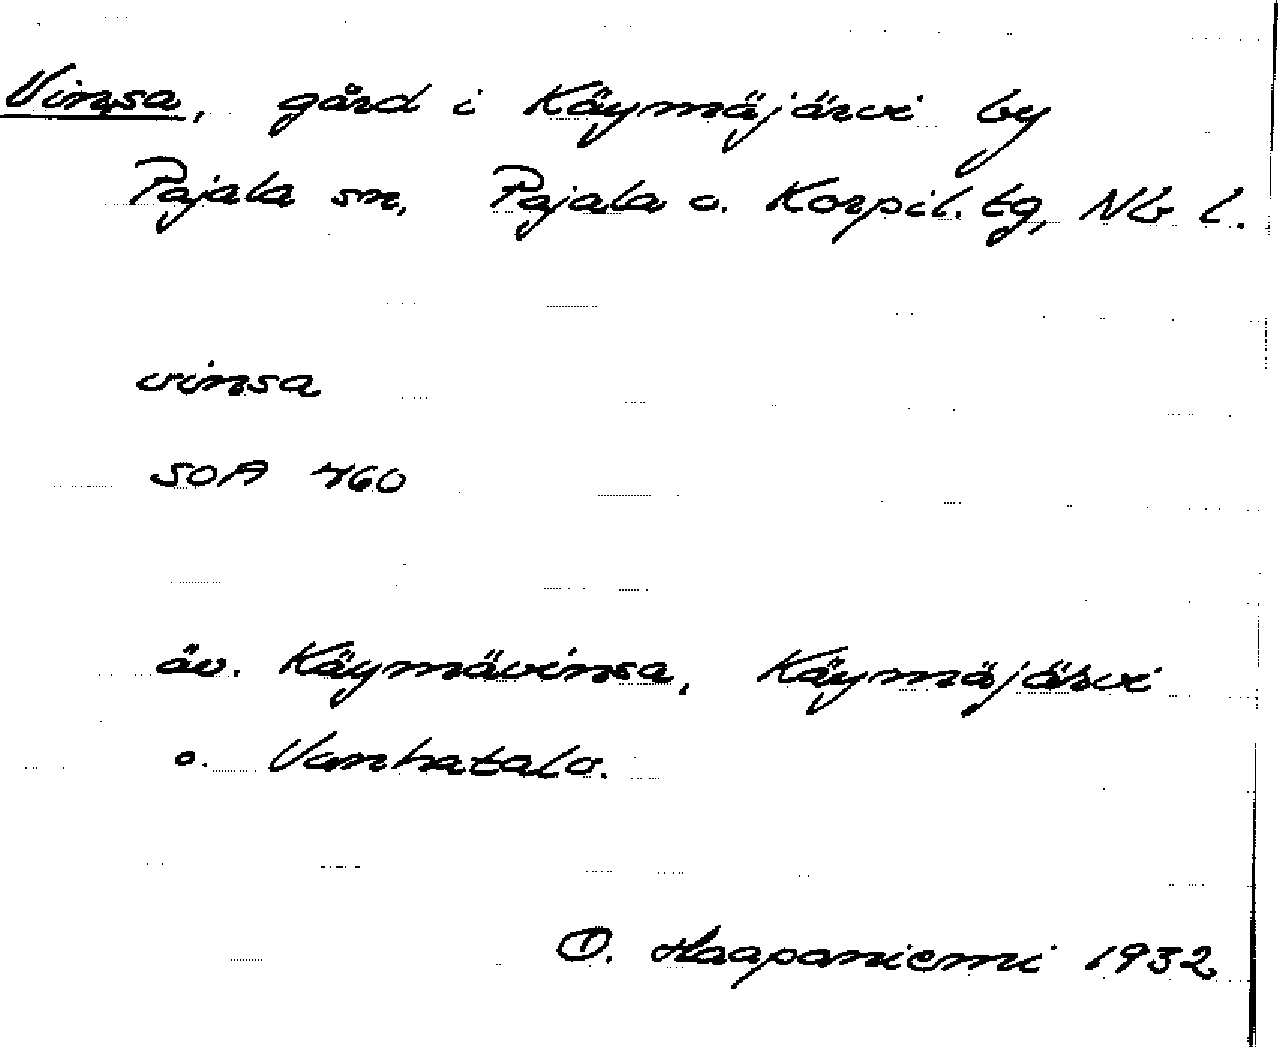 Vinsa, gård i Käymäjärvi by
Pajala sn, Pajala o. Korpil. tg, Nb l.
vinsa
SOA 760
äv. Käymävinsa, Käymäjärvi
o. Vanhatalo.
O. Haapaniemi 1932